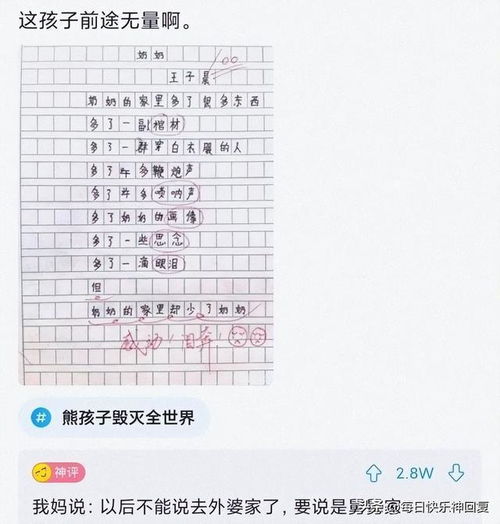 这孩子前途无量啊。
奶奶
100
王子晨
奶奶的家里多了很多东西
多了一副棺材
多了一群穿白衣服的人
多了许多鞭炮声
多了许多唢呐声
多了奶奶的画像
多了一些思念
多了一滴眼泪
但
奶奶的家里却少了奶奶
感动！泪奔！
# 熊孩子毁灭全世界
神评
2.8W
我妈说：以后不能说去外婆家了，要说是舅舅家
@每日快乐神回复